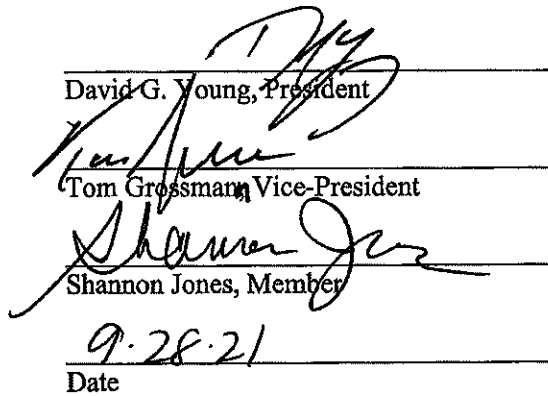 David G. Young, President
Tom Grossmann, Vice-President
Shannon Jones
Shannon Jones, Member
9.28.21
Date